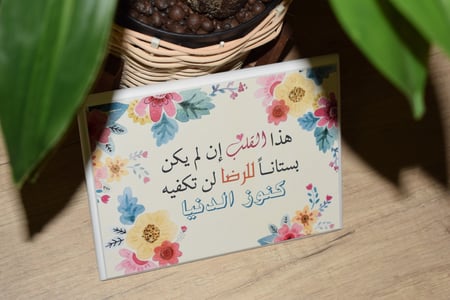 هذا القلب إن لم يكن
بستاناً للرضا لن تكفيه
كنوز الدنيا